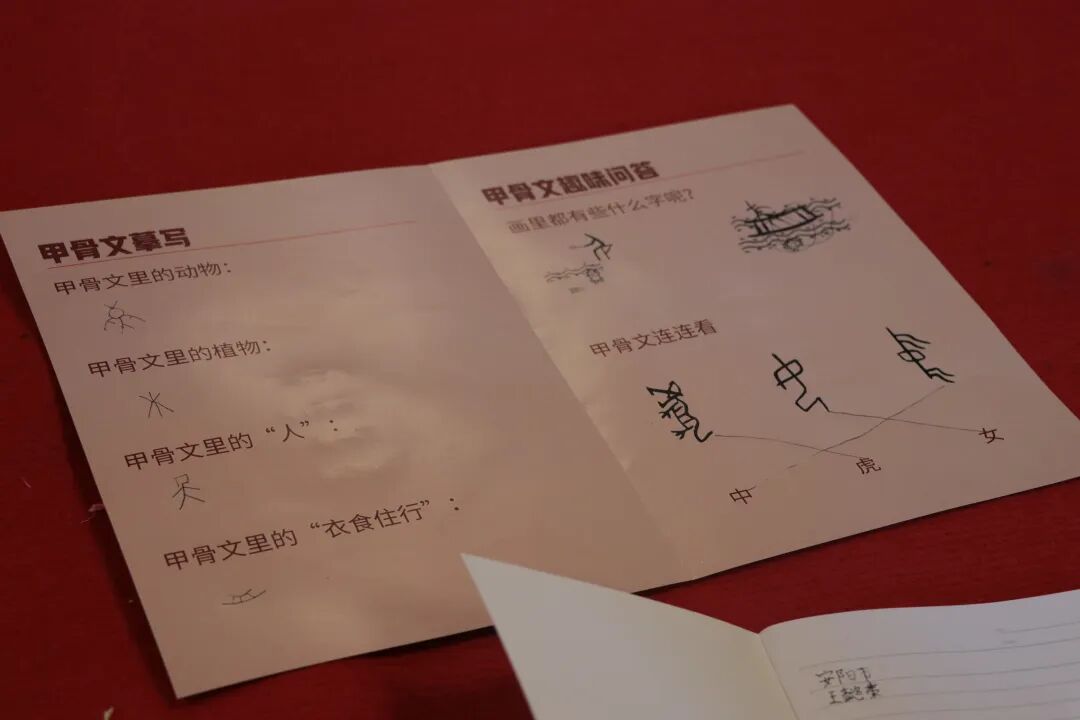 甲骨文摹写
甲骨文里的动物：
甲骨文里的植物：
甲骨文里的“人”：
甲骨文里的“衣食住行”：
甲骨文趣味问答
画里都有些什么字呢？
甲骨文连连看
中 虎 女
安阳市